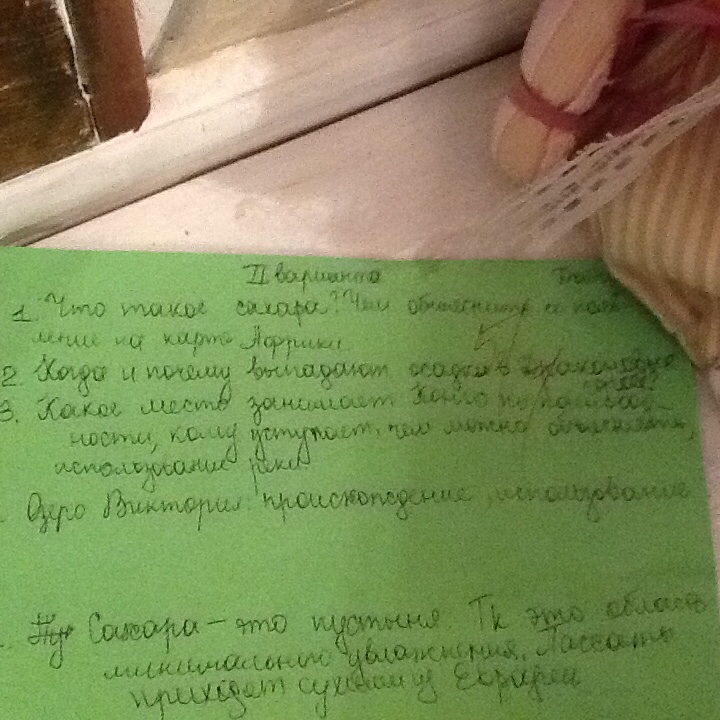 II варианта
1. Что такое сахара? Чем объяснить ее появ-
ление на карте Африки
2. Когда и почему выпадают осадки в
3. Какое место занимает Конго по
ности, кому уступает, чем можно объяснить,
использование реки
Озеро Виктория: происхождение, использование
Сахара – это пустыня. Тк это область
минимального увлажнения. Пассаты
приходят сухими из Евразии